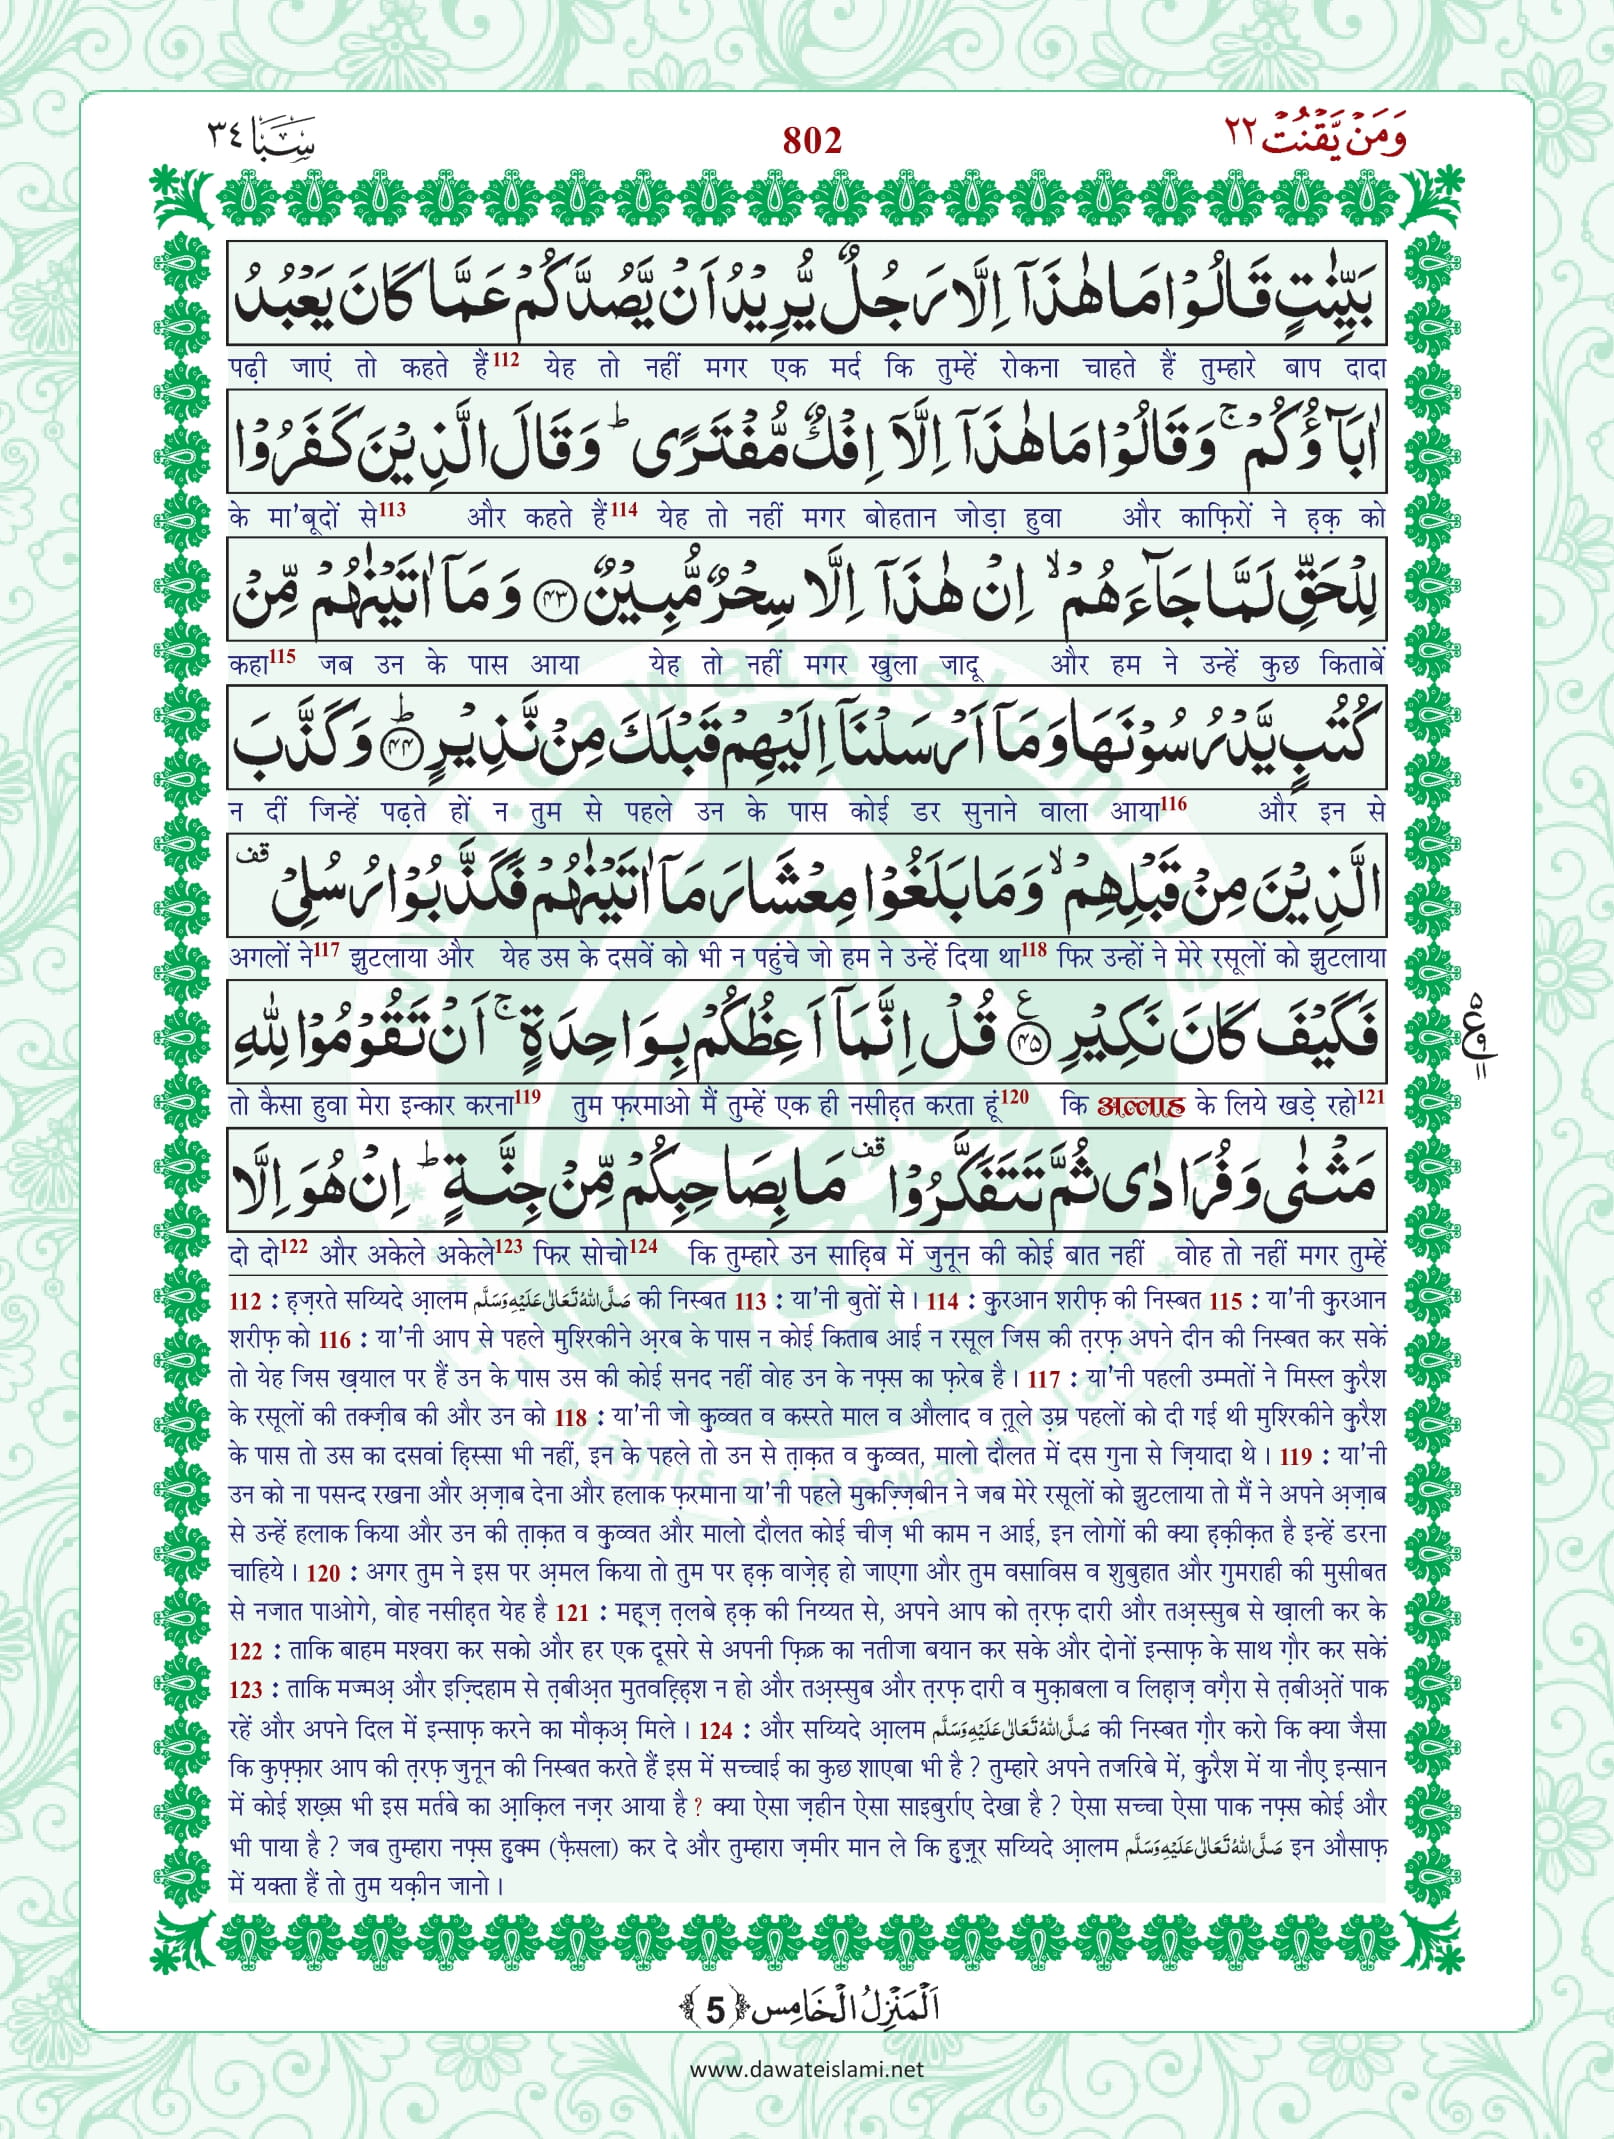 وَمَنْ يَّقْنُتْ ٢٢
802
سَبَا ٣٤
بَيِّنٰتٍ قَالُوْا مَا هٰذَاۤ اِلَّا رَجُلٌ يُّرِيْدُ اَنْ يَّصُدَّكُمْ عَمَّا كَانَ يَعْبُدُ
पढ़ी जाएं तो कहते हैं112 येह तो नहीं मगर एक मर्द कि तुम्हें रोकना चाहते हैं तुम्हारे बाप दादा
اٰبَآؤُكُمْ ۚ وَقَالُوْا مَا هٰذَاۤ اِلَّاۤ اِفْكٌ مُّفْتَرًى ؕ وَقَالَ الَّذِيْنَ كَفَرُوْا
के मा'बूदों से113 और कहते हैं114 येह तो नहीं मगर बोहतान जोड़ा हुवा और काफ़िरों ने ह़क़ को
لِلْحَقِّ لَمَّا جَآءَهُمْ ۙ اِنْ هٰذَاۤ اِلَّا سِحْرٌ مُّبِيْنٌ ﴿٤٣﴾ وَمَاۤ اٰتَيْنٰهُمْ مِّنْ
कहा115 जब उन के पास आया येह तो नहीं मगर खुला जादू और हम ने उन्हें कुछ किताबें
كُتُبٍ يَّدْرُسُوْنَهَا وَمَاۤ اَرْسَلْنَاۤ اِلَيْهِمْ قَبْلَكَ مِنْ نَّذِيْرٍ ﴿٤٤﴾ؕ وَكَذَّبَ
न दीं जिन्हें पढ़ते हों न तुम से पहले उन के पास कोई डर सुनाने वाला आया116 और इन से
الَّذِيْنَ مِنْ قَبْلِهِمْ ۙ وَمَا بَلَغُوْا مِعْشَارَ مَاۤ اٰتَيْنٰهُمْ فَكَذَّبُوْا رُسُلِيْ ۫ قف
अगलों ने117 झुटलाया और येह उस के दसवें को भी न पहुंचे जो हम ने उन्हें दिया था118 फिर उन्हों ने मेरे रसूलों को झुटलाया
فَكَيْفَ كَانَ نَكِيْرِ ﴿٤٥﴾ ع قُلْ اِنَّمَاۤ اَعِظُكُمْ بِوَاحِدَةٍ ۚ اَنْ تَقُوْمُوْا لِلّٰهِ
तो कैसा हुवा मेरा इन्कार करना119 तुम फ़रमाओ मैं तुम्हें एक ही नसीह़त करता हूं120 कि अल्लाह के लिये खड़े रहो121
مَثْنٰى وَفُرَادٰى ثُمَّ تَتَفَكَّرُوْا ۫ قف مَا بِصَاحِبِكُمْ مِّنْ جِنَّةٍ ؕ اِنْ هُوَ اِلَّا
दो दो122 और अकेले अकेले123 फिर सोचो124 कि तुम्हारे उन साह़िब में जुनून की कोई बात नहीं वोह तो नहीं मगर तुम्हें
112 : ह़ज़रते सय्यिदे आ़लम صَلَّى اللهُ تَعَالٰى عَلَيْهِ وَسَلَّم की निस्बत 113 : या'नी बुतों से। 114 : कुरआन शरीफ़ की निस्बत 115 : या'नी कुरआन
शरीफ़ को 116 : या'नी आप से पहले मुश्रिकीने अ़रब के पास न कोई किताब आई न रसूल जिस की त़रफ़ अपने दीन की निस्बत कर सकें
तो येह जिस ख़याल पर हैं उन के पास उस की कोई सनद नहीं वोह उन के नफ़्स का फ़रेब है। 117 : या'नी पहली उम्मतों ने मिस्ल कुरैश
के रसूलों की तक्ज़ीब की और उन को 118 : या'नी जो कु़व्वत व कस्रते माल व औलाद व त़ूले उ़म्र पहलों को दी गई थी मुश्रिकीने कुरैश
के पास तो उस का दसवां हि़स्सा भी नहीं, इन के पहले तो उन से त़ाक़त व कु़व्वत, मालो दौलत में दस गुना से ज़ियादा थे। 119 : या'नी
उन को ना पसन्द रखना और अ़ज़ाब देना और हलाक फ़रमाना या'नी पहले मुकज़्ज़िबीन ने जब मेरे रसूलों को झुटलाया तो मैं ने अपने अ़ज़ाब
से उन्हें हलाक किया और उन की त़ाक़त व कु़व्वत और मालो दौलत कोई चीज़ भी काम न आई, इन लोगों की क्या ह़क़ीक़त है इन्हें डरना
चाहिये। 120 : अगर तुम ने इस पर अ़मल किया तो तुम पर ह़क़ वाज़ेह़ हो जाएगा और तुम वसाविस व शुबुहात और गुमराही की मुसीबत
से नजात पाओगे, वोह नसीह़त येह है 121 : मह़ज़ त़लबे ह़क़ की निय्यत से, अपने आप को त़रफ़ दारी और तअ़स्सुब से ख़ाली कर के
122 : ताकि बाहम मश्वरा कर सको और हर एक दूसरे से अपनी फ़िक्र का नतीजा बयान कर सके और दोनों इन्साफ़ के साथ ग़ौर कर सकें
123 : ताकि मज्मअ़ और इज़्दिहाम से त़बीअ़त मुतवह़्ह़िश न हो और तअ़स्सुब और त़रफ़ दारी व मुक़ाबला व लिह़ाज़ वग़ैरा से त़बीअ़तें पाक
रहें और अपने दिल में इन्साफ़ करने का मौक़अ़ मिले। 124 : और सय्यिदे आ़लम صَلَّى اللهُ تَعَالٰى عَلَيْهِ وَسَلَّم की निस्बत ग़ौर करो कि क्या जैसा
कि कुफ़्फ़ार आप की त़रफ़ जुनून की निस्बत करते हैं इस में सच्चाई का कुछ शाएबा भी है ? तुम्हारे अपने तजरिबे में, कुरैश में या नौए इन्सान
में कोई शख़्स भी इस मर्तबे का आ़क़िल नज़र आया है ? क्या ऐसा ज़हीन ऐसा साइबुर्राए देखा है ? ऐसा सच्चा ऐसा पाक नफ़्स कोई और
भी पाया है ? जब तुम्हारा नफ़्स हुक्म (फ़ैसला) कर दे और तुम्हारा ज़मीर मान ले कि हुज़ूर सय्यिदे आ़लम صَلَّى اللهُ تَعَالٰى عَلَيْهِ وَسَلَّم इन औसाफ़
में यक्ता हैं तो तुम यक़ीन जानो।
اَلْمَنْزِلُ الْخَامِس ﴿5﴾
www.dawateislami.net